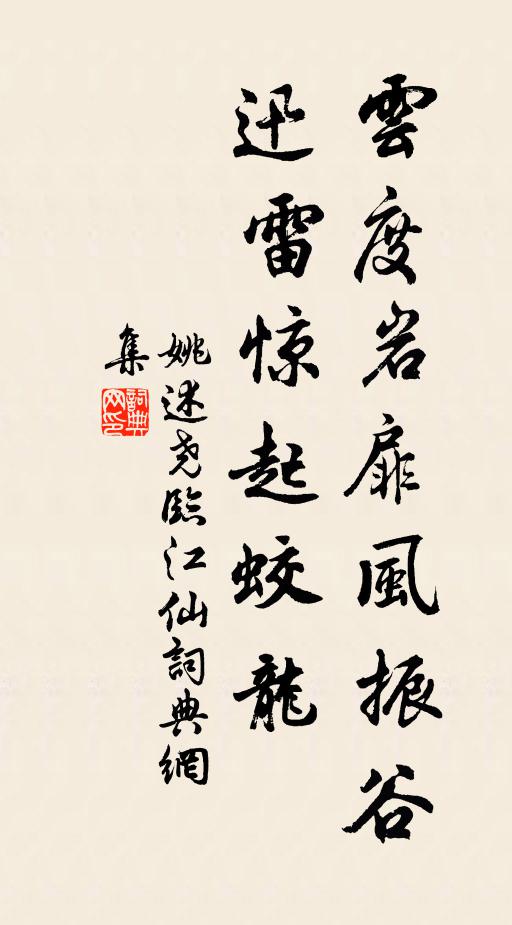 雲度岩扉風振谷
迅雷惊起蛟龍
姚述尧臨江仙詞典網
集
詞典
网印